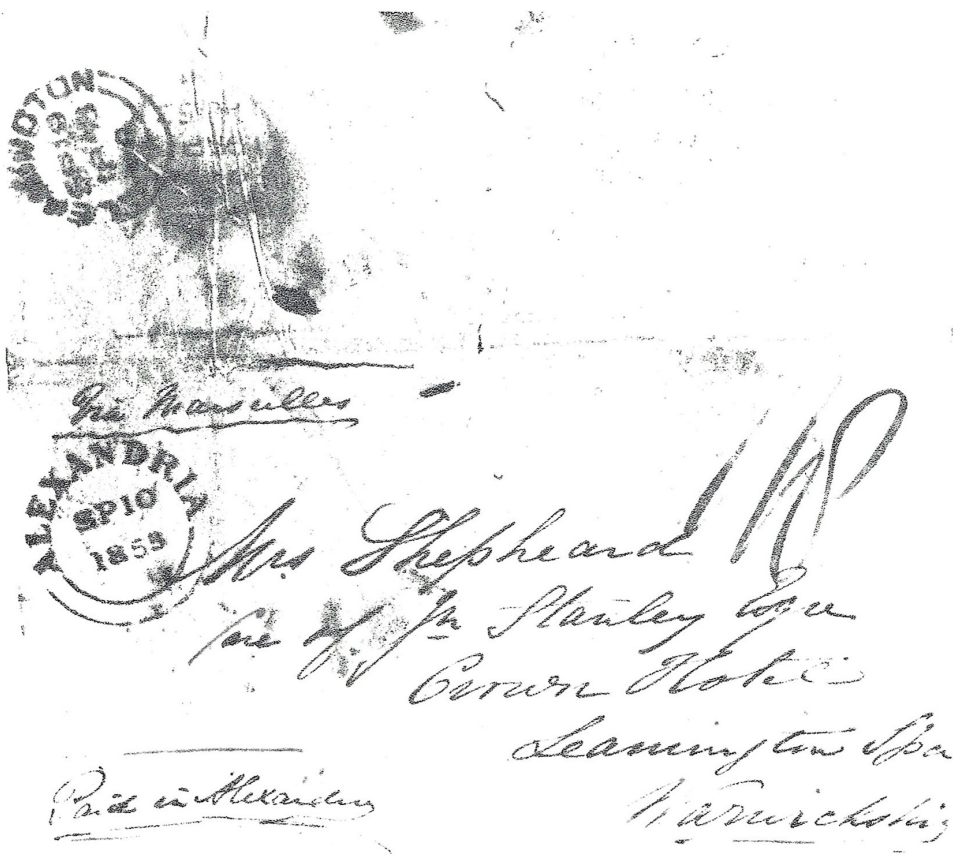 Via Marseilles
ALEXANDRIA
SP10
1853
Mrs Shepheard
Care of Wm Stanley Esqre
Crown Hotel
Leamington Spa
Warwickshire
Paid in Alexandria